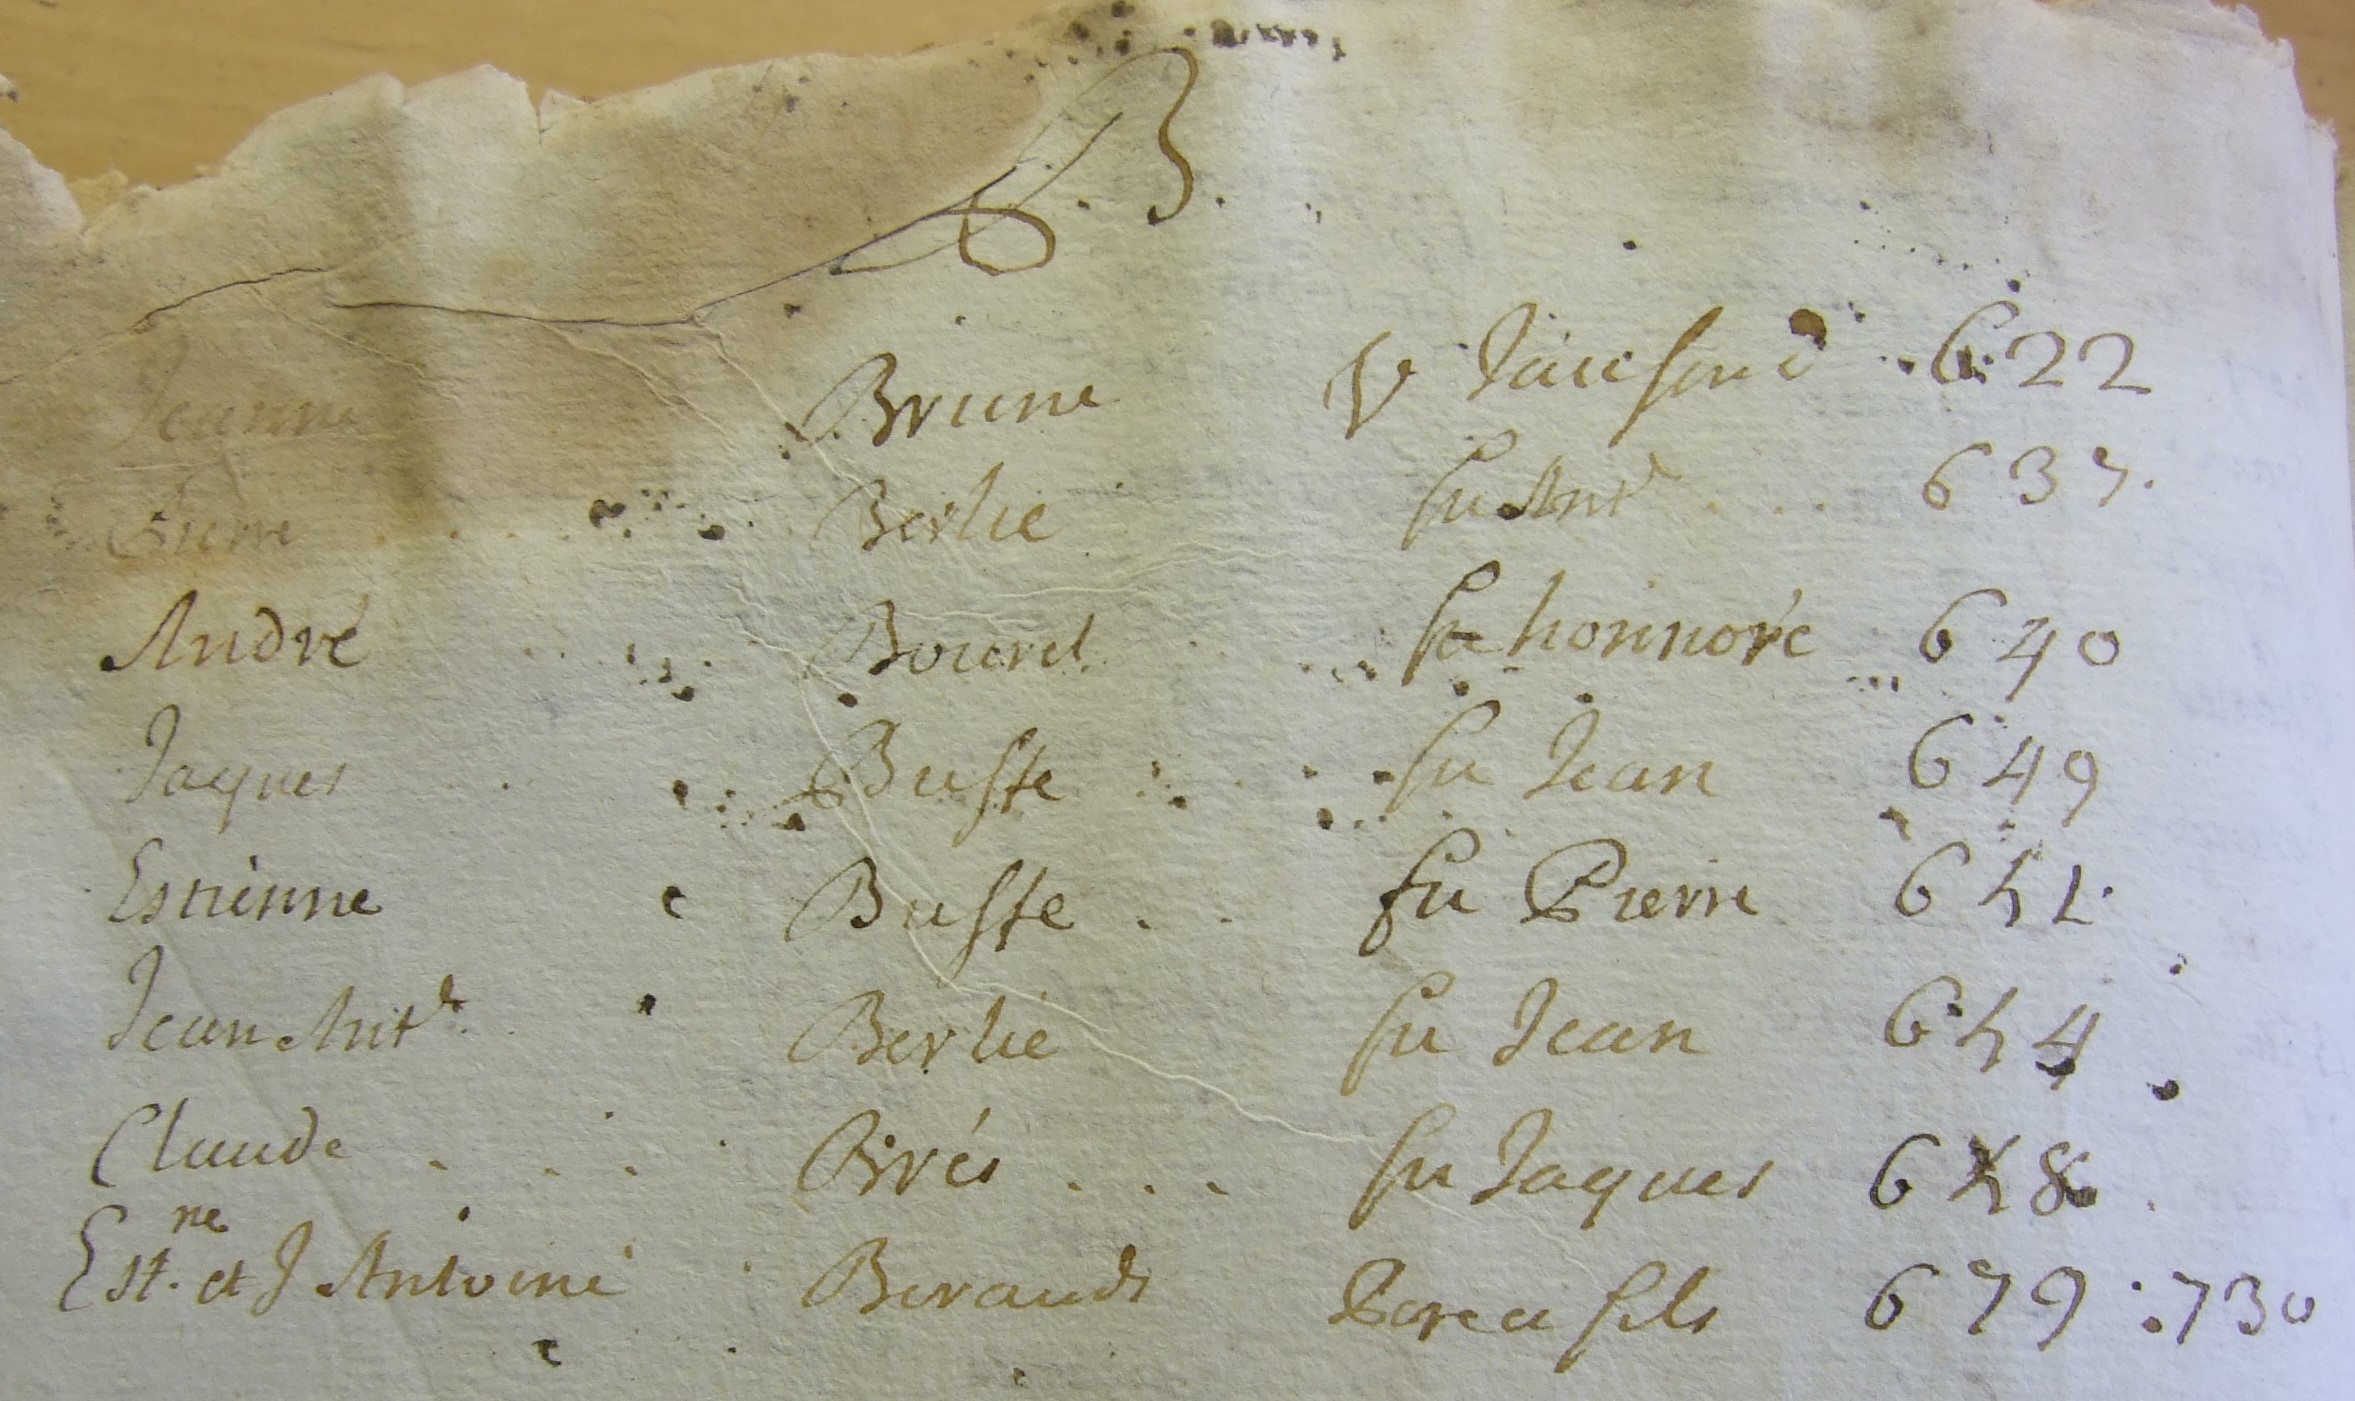 B.
Jeanne Brune Ve Jaussaud 622
Pierre Berlie fu Antᵉ 637.
André Bouret fu honnoré 640
Jaques Buffe fu Jean 649
Estienne Buffe fu Pierre 652.
Jean Antᵉ Berlie fu Jean 654
Claude Brés fu Jaques 658
Estne. et J Antoine Beraud Pere et fils 679 : 730